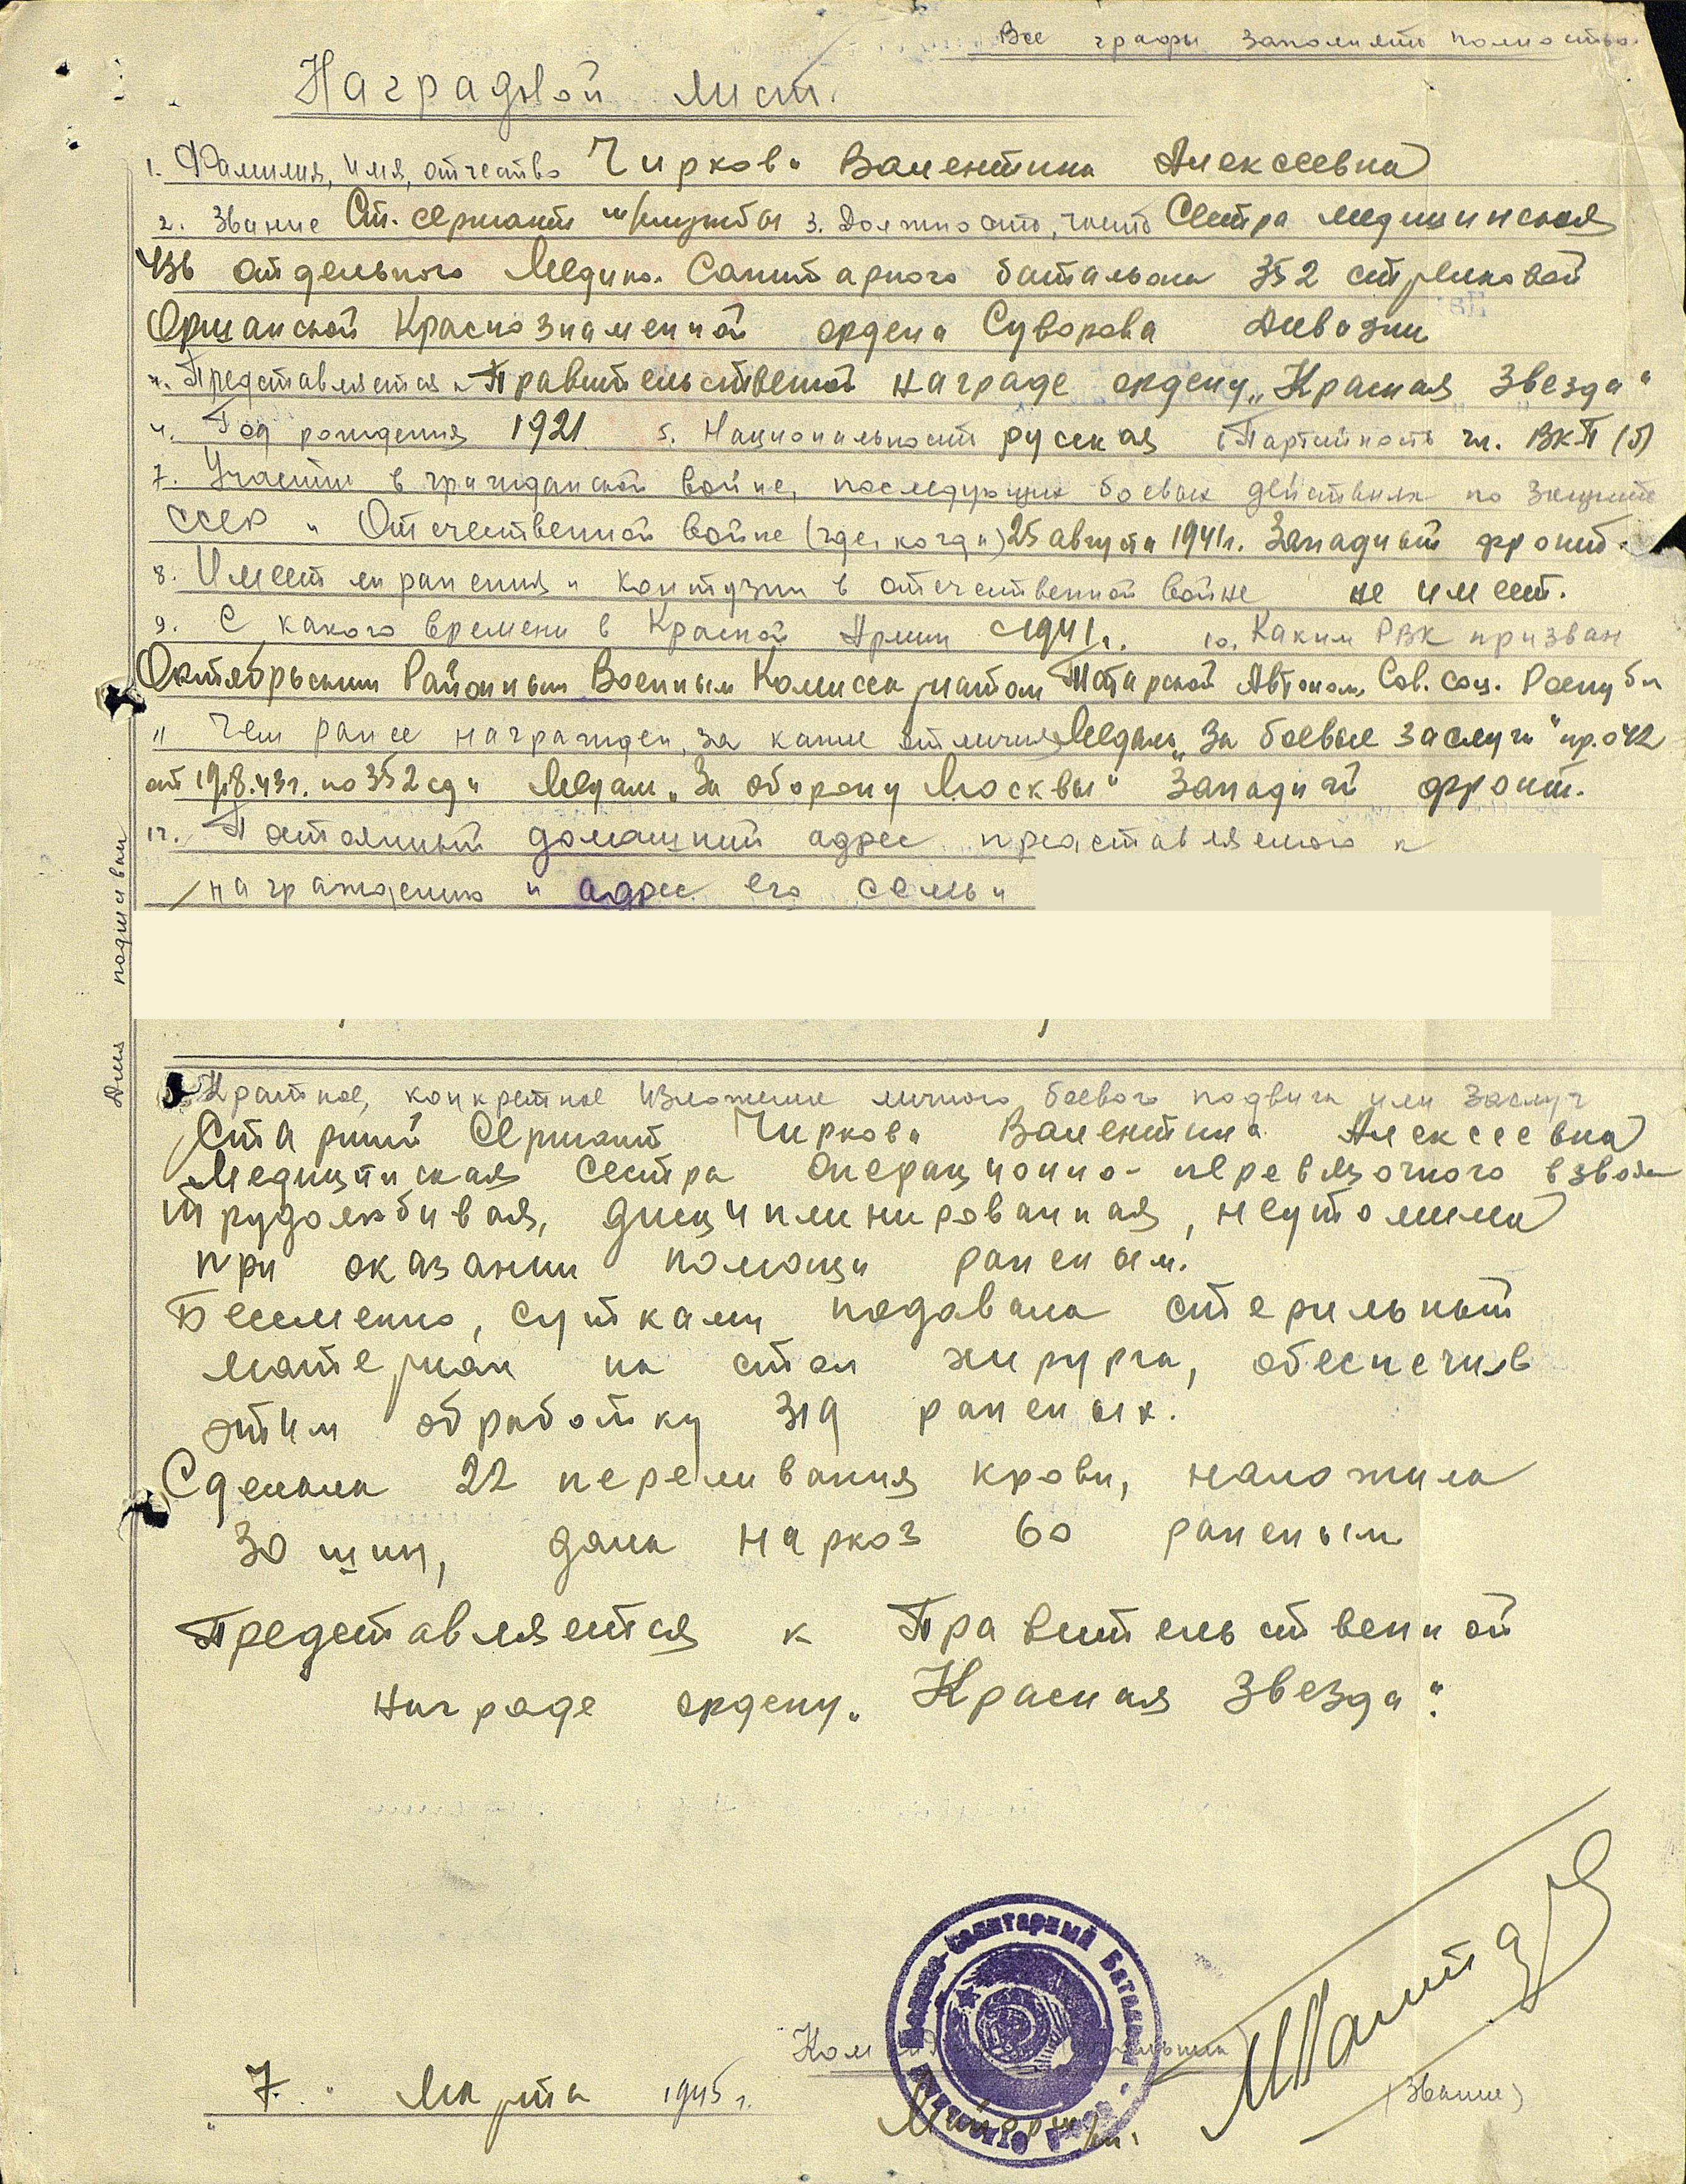 Все графы заполнять полностью.
Наградной лист.
1. Фамилия, имя, отчество Чиркова Валентина Алексеевна
2. Звание Ст. сержант м/службы 3. Должность, часть Сестра медицинская
436 отдельного Медико-Санитарного баталиона 352 стрелковой
Оршанской Краснознаменной ордена Суворова Дивизии
Представляется к Правительственной награде ордену „Красная Звезда“
4. Год рождения 1921 5. Национальность русская 6 Партийность чл. ВКП(б)
7. Участие в гражданской войне, последующих боевых действиях по защите
СССР и Отечественной войне (где, когда) 25 августа 1941г. Западный фронт.
8. Имеет ли ранения и контузии в отечественной войне не имеет.
9. С какого времени в Красной Армии с 1941г. 10. Каким РВК призван
Октябрьским Районным Военным Комиссариатом Татарской Автоном. Сов. соц. Республ
11 Чем ранее награжден, за какие отличия Медаль „За боевые заслуги“ пр. 042
от 19.8.43г. по 352 сд и Медаль „За оборону Москвы“ Западный фронт.
12. Постоянный домашний адрес представляемого к
награждению и адрес его семьи
Для подшивки
Краткое, конкретное изложение личного боевого подвига или заслуг
Старший Сержант Чиркова Валентина Алексеевна
Медицинская сестра операционно-перевязочного взвода
трудолюбивая, дисциплинированная, неутомима
при оказании помощи раненым.
Бессменно, сутками подавала стерильный
материал на стол хирурга, обеспечив
этим обработку 319 раненых.
Сделала 22 переливания крови, наложила
30 шин, дала наркоз 60 раненым
Представляется к Правительственной
награде ордену „Красная Звезда“.
Санитарный Батальон
7. Марта 1945г.
Майор м/с.
(Звание)